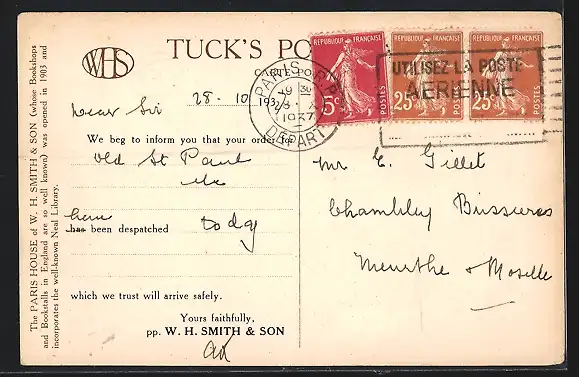 WHS
TUCK'S PO
CARTE PO
REPUBLIQUE FRANÇAISE
5c
POSTES
REPUBLIQUE FRANÇAISE
25c
POSTES
REPUBLIQUE FRANÇAISE
25c
POSTES
PARIS R.P.
19 30
28 X
1937
DÉPART
UTILISEZ LA POSTE
AERIENNE
28-10 193
Dear Sir
We beg to inform you that your order for
Old St Paul
etc
have
has been despatched today
which we trust will arrive safely.
Yours faithfully,
pp. W. H. SMITH & SON
Mr E. Gillet
Chambley Bussieres
Meurthe & Moselle
The PARIS HOUSE of W. H. SMITH & SON (whose Bookshops
and Bookstalls in England are so well known) was opened in 1903 and
incorporates the well-known Neal Library.